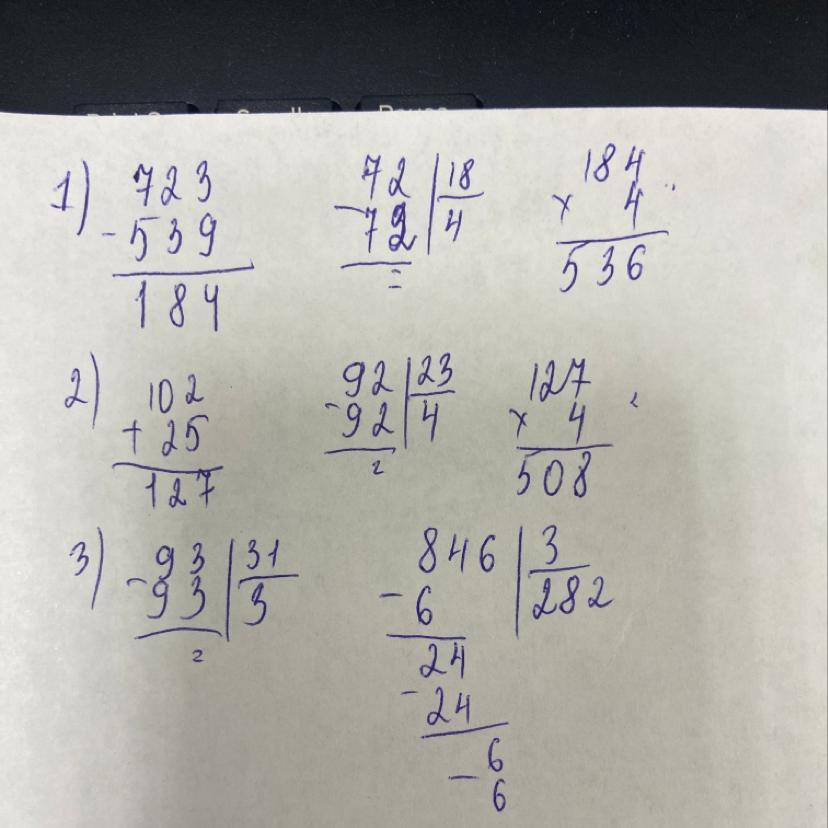 1) 723 72 | 18 184
- 539 - 72 | 4 × 4
184 = 536
2) 102 92 | 23 127
+ 25 - 92 | 4 × 4
127 = 508
3) - 93 | 31 846 | 3
93 | 3 - 6 | 282
= 24
- 24
- 6
6